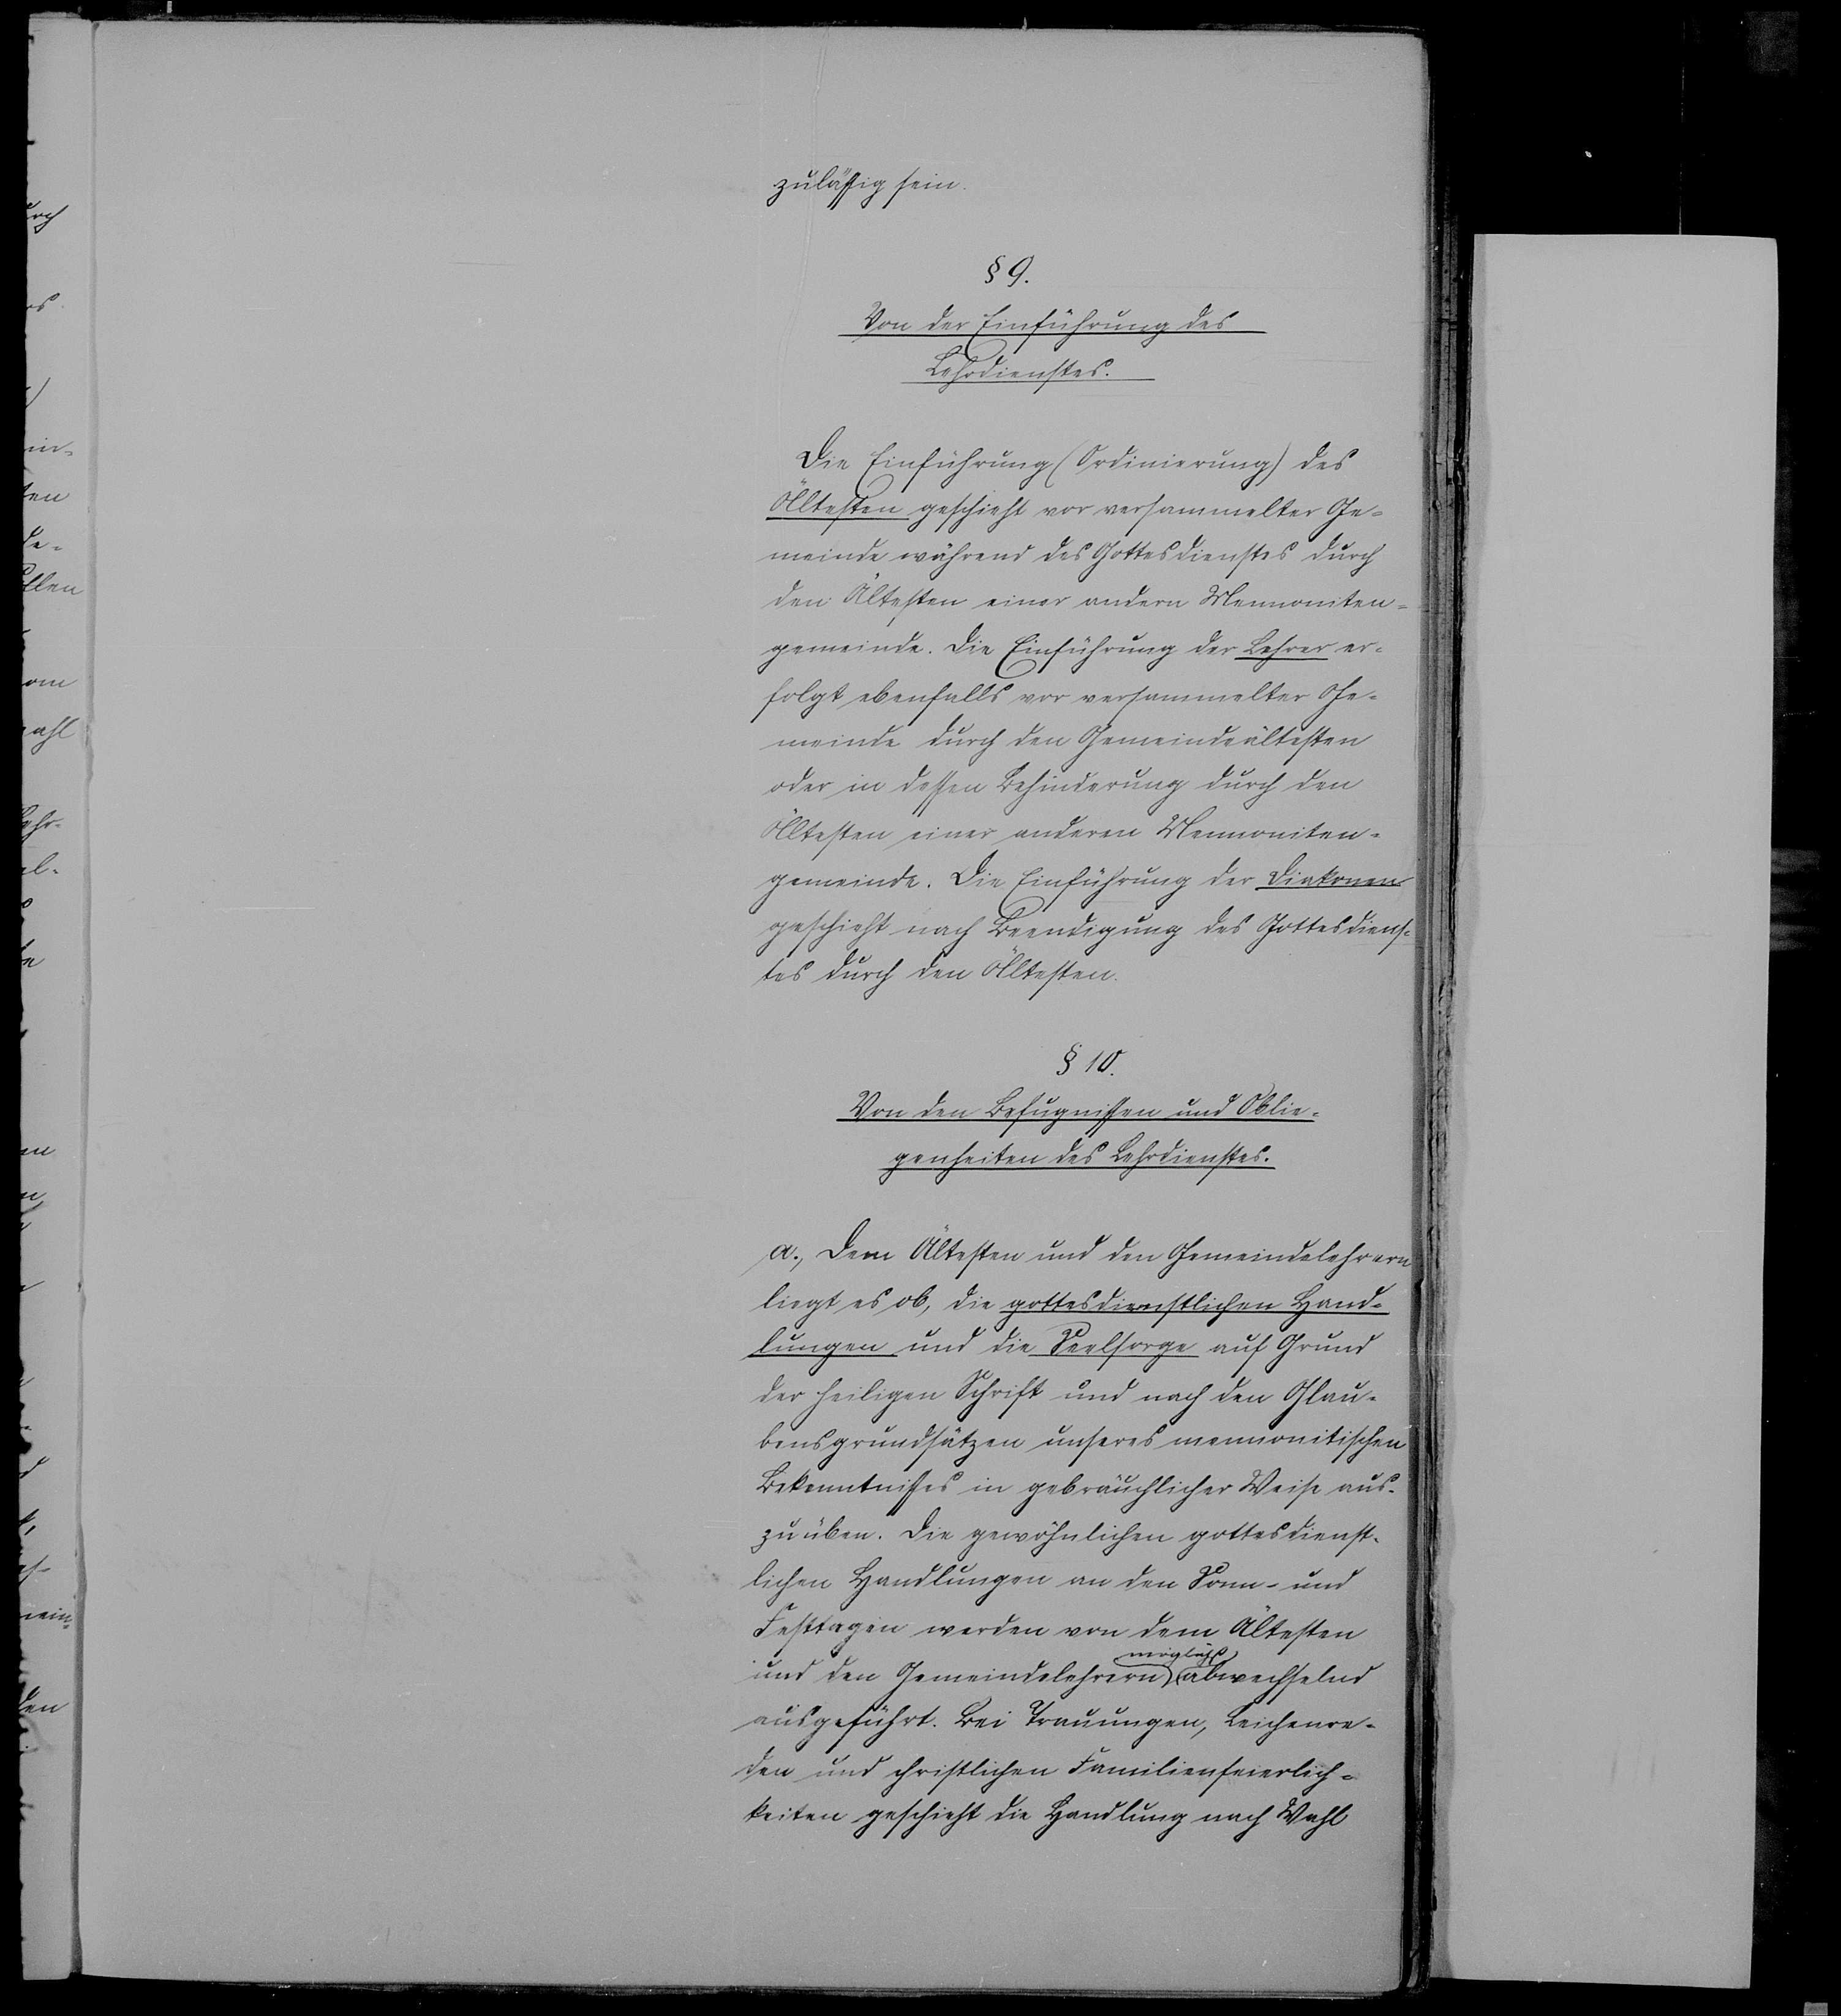 zulässig sein.
§ 9.
Von der Einführung des
Lehrdienstes.
Die Einführung (Ordinierung) des
Ältesten geschieht vor versammelter Ge-
meinde während des Gottesdienstes durch
den Ältesten einer andern Mennoniten-
gemeinde. Die Einführung der Lehrer er-
folgt ebenfalls vor versammelter Ge-
meinde durch den Gemeindeältesten
oder in dessen Behinderung durch den
Ältesten einer anderen Mennoniten-
gemeinde. Die Einführung der Diakonen
geschieht nach Beendigung des Gottesdiens-
tes durch den Ältesten.
§ 10.
Von den Befugnissen und Oblie-
genheiten des Lehrdienstes.
a., Dem Ältesten und den Gemeindelehrern
liegt es ob, die gottesdienstlichen Hand-
lungen und die Seelsorge auf Grund
der heiligen Schrift und nach den Glau-
bensgrundsätzen unseres mennonitischen
Bekenntnisses in gebräuchlicher Weise aus-
zuüben. Die gewöhnlichen gottesdienst-
lichen Handlungen an den Sonn- und
Festtagen werden von dem Ältesten
möglichst
und den Gemeindelehrern abwechselnd
ausgeführt. Bei Trauungen, Leichenre-
den und christlichen Familienfeierlich-
keiten geschieht die Handlung nach Wahl